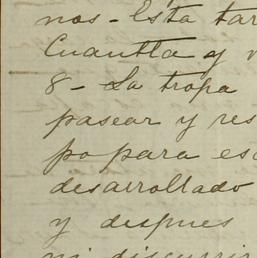 nos - Esta tar
Cuautla y v
8 - La tropa
pasear y res
po para esc
desarrollado
y despues
ni discurrir